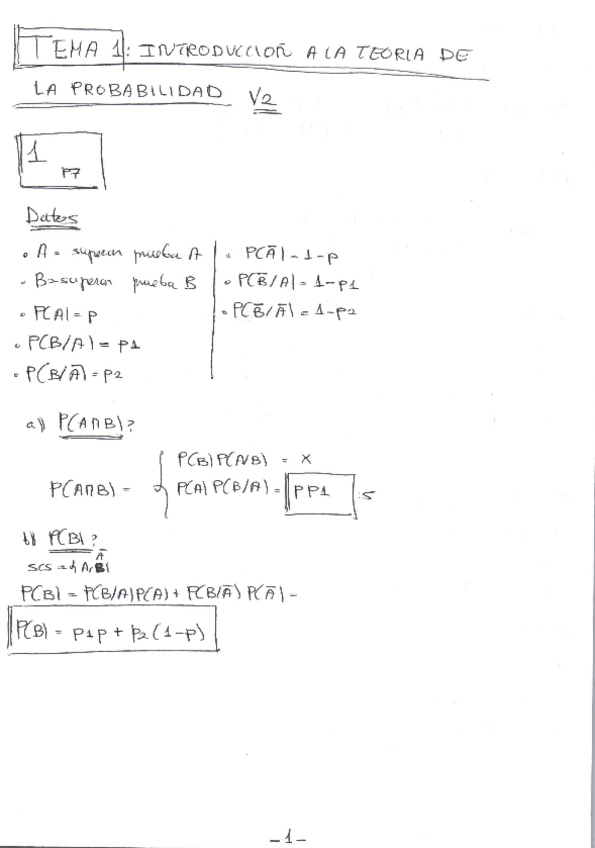 TEMA 1: INTRODUCCION A LA TEORIA DE
LA PROBABILIDAD V2
1
P7
Datos
• A = superan prueba A
• B = superan prueba B
• P(A) = p
• P(B/A) = p1
• P(B/Ā) = p2
• P(Ā) = 1-p
• P(B̄/A) = 1-p1
• P(B̄/Ā) = 1-p2
a) P(A∩B)?
P(A∩B) =
P(B) P(A/B) = X
P(A) P(B/A) = pp1
b) P(B)?
P(B) = P(B/A)P(A) + P(B/Ā) P(Ā) =
P(B) = p1p + p2(1-p)
-1-